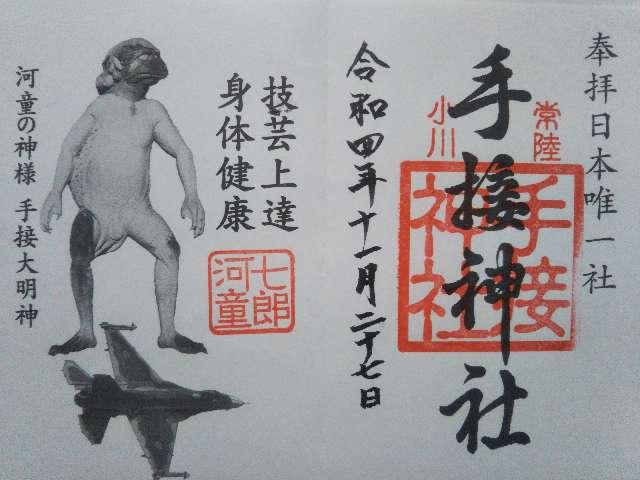 奉拝日本唯一社
常陸
小川
手接神社
手接
神社
令和四年十一月二十七日
技芸上達
身体健康
七郎
河童
河童の神様 手接大明神